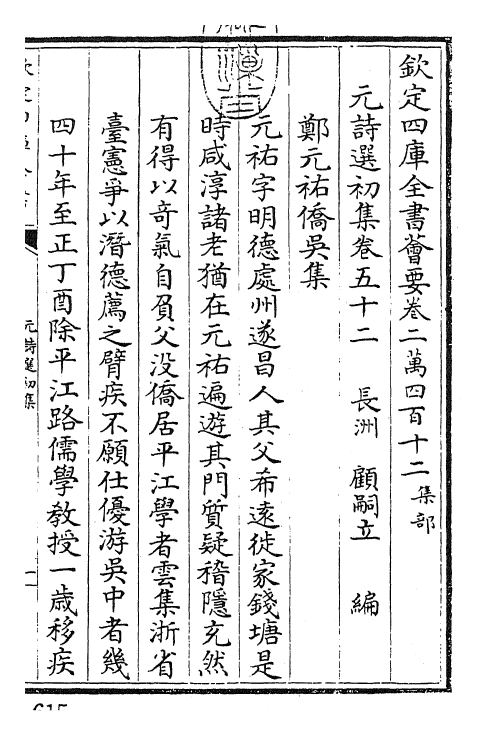 欽定四庫全書薈要卷二萬四百十二集部
元詩選初集卷五十二 長洲 顧嗣立 編
鄭元祐僑吳集
元祐字明德處州遂昌人其父希遠徙家錢塘是
時咸淳諸老猶在元祐遍遊其門質疑稽隱充然
有得以奇氣自負父没僑居平江學者雲集浙省
臺憲爭以潛德薦之臂疾不願仕優游吳中者幾
四十年至正丁酉除平江路儒學教授一歲移疾
元詩選初集
一